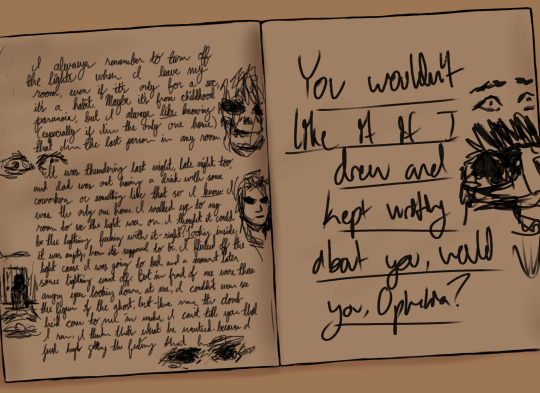 I always remember to turn off
the lights when I leave my
room, even if it's only for a sec,
it's a habit. Maybe it's from childhood
paranoia, but I always like knowing,
especially if I'm the only one home,
that I'm the last person in any room.
It was thundering last night, late night too,
and dad was out having a drink with some
coworkers or something like that so I knew I
was the only one home. I walked up to my
room to see the light was on. I thought it could
be the lightning fucking with it right? Looking inside,
it was empty, how it's supposed to be. I flicked off the
light cause I was going to bed, and a moment later
some lightning went off. But in front of me were those
angry eyes looking down at me, I couldn't even see
the figure of the ghost, but
I ran, I think that's what he wanted, because I
just kept getting the feeling that
You wouldn't
like it if I
drew and
kept
about you, would
you, Ophelia?